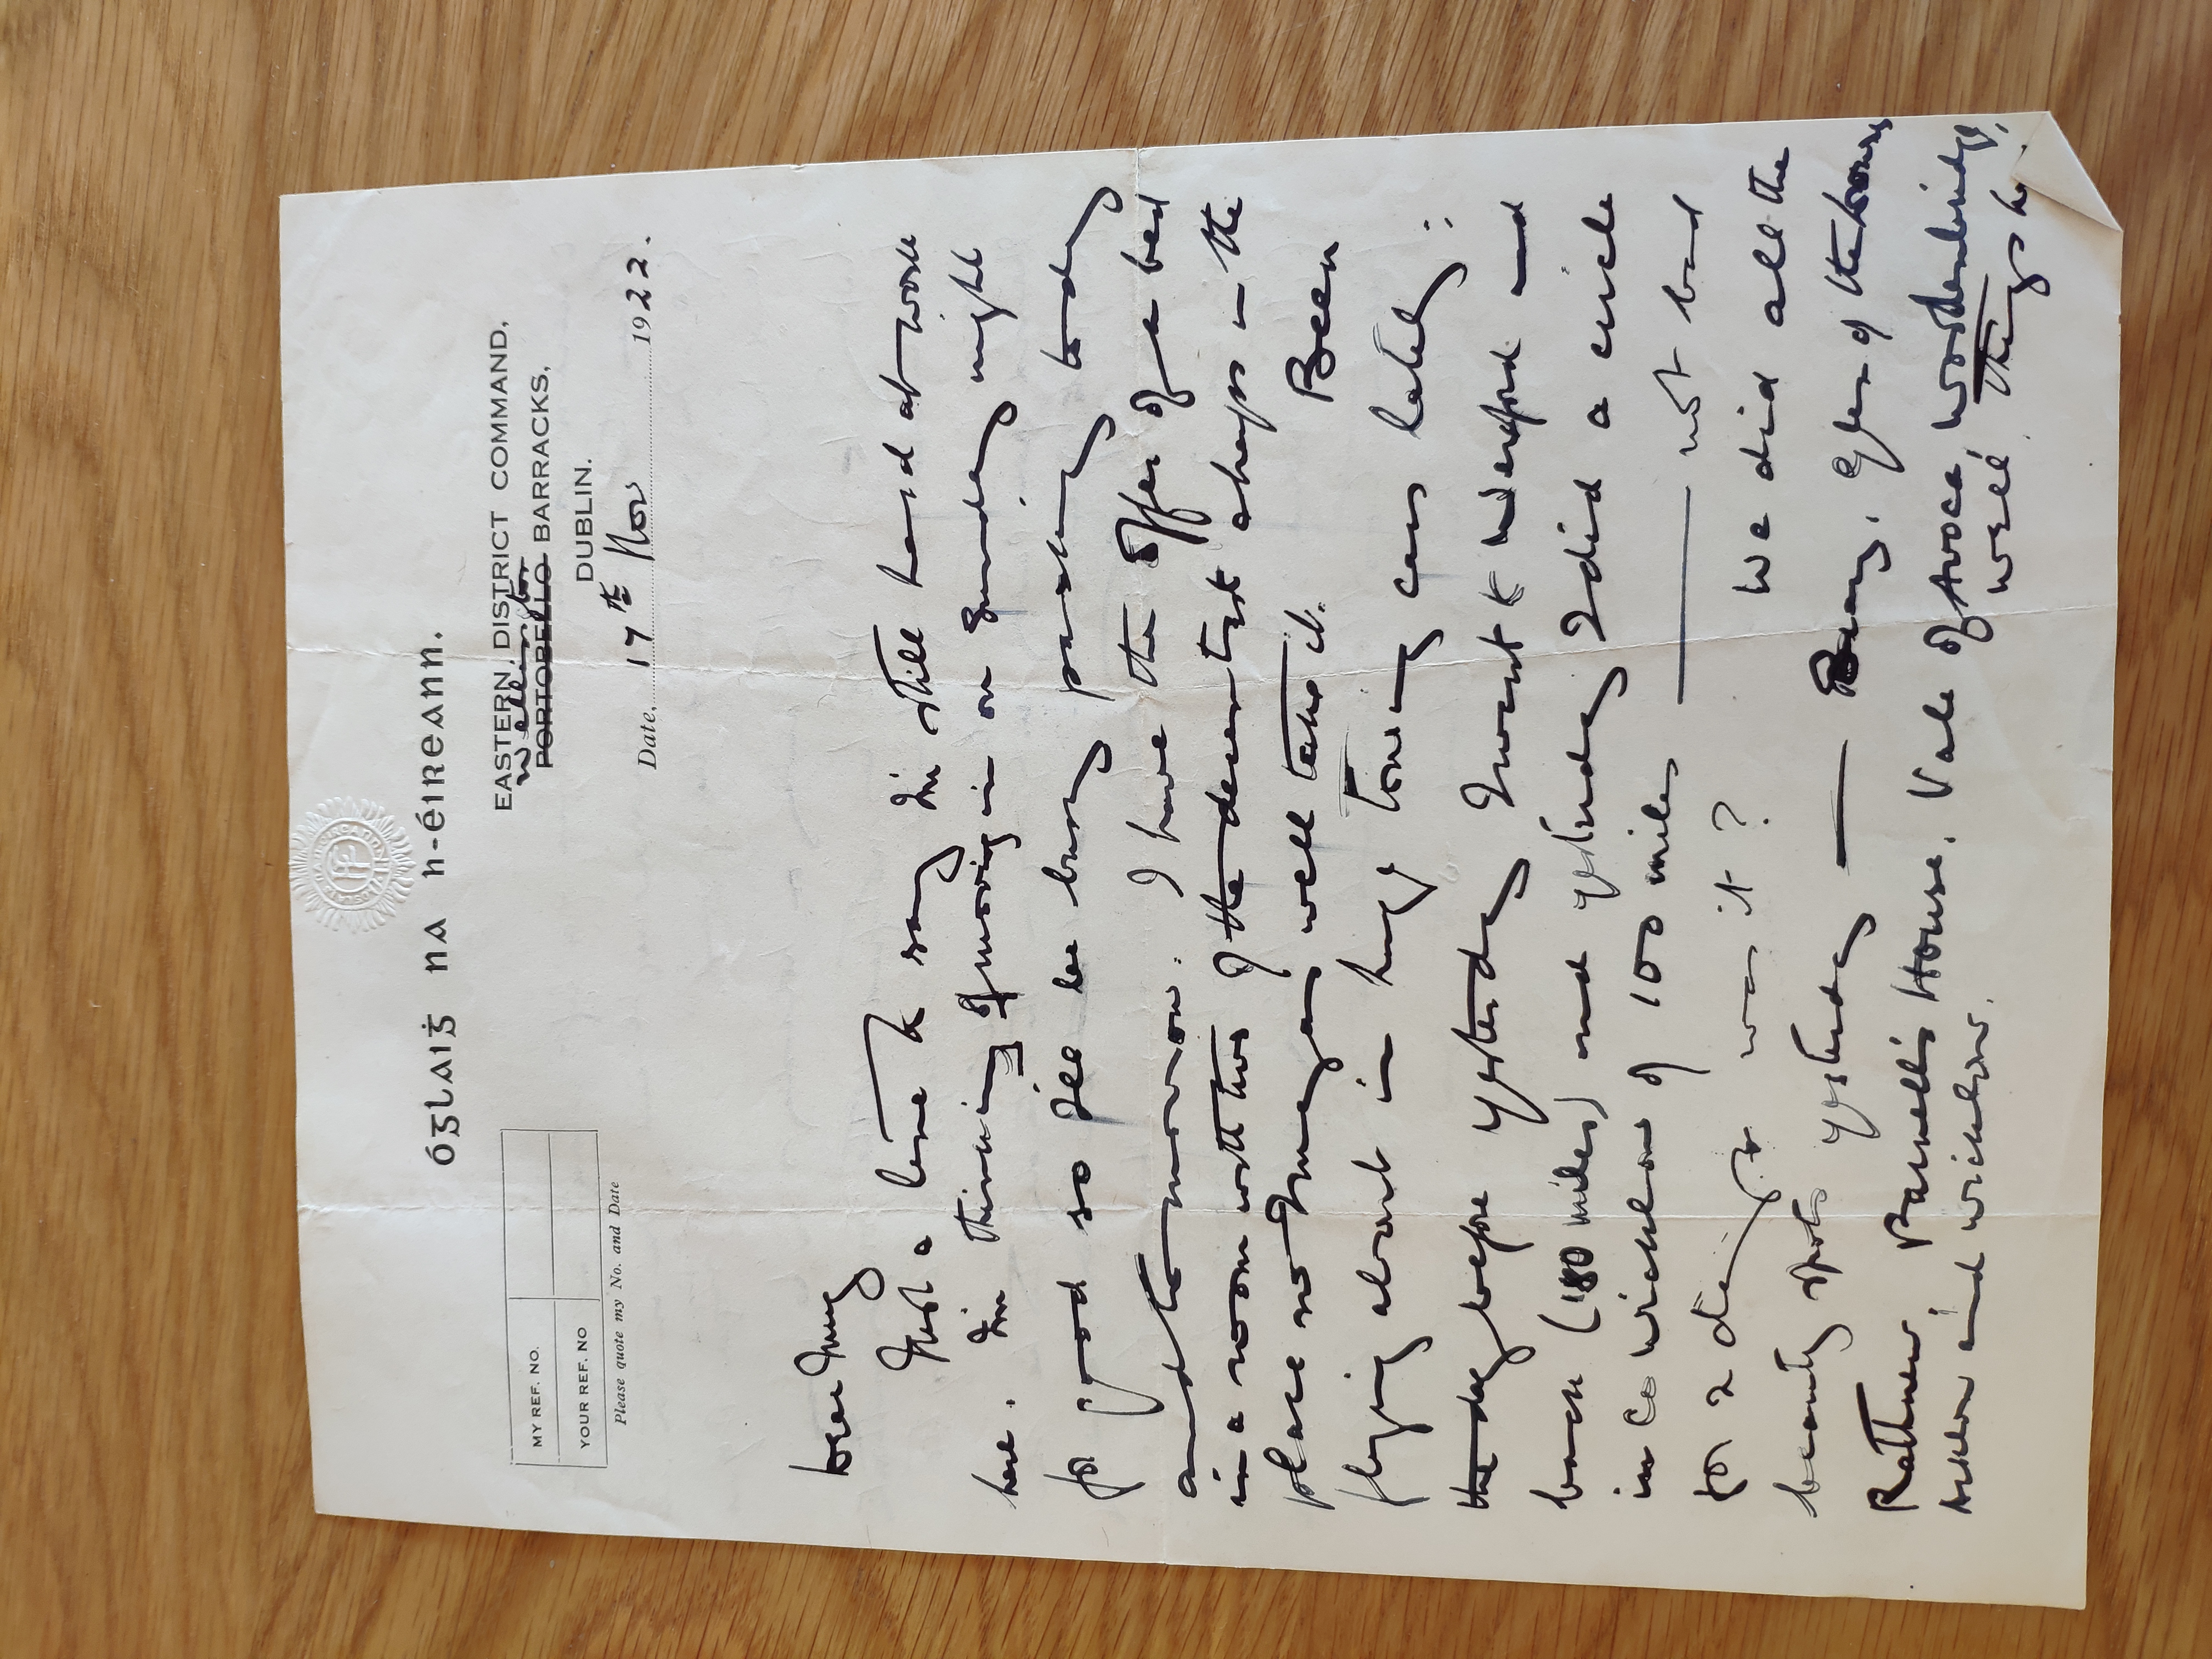 Óglaiġ na h-Éireann.
EASTERN DISTRICT COMMAND,
Wellington
PORTOBELLO BARRACKS,
DUBLIN.
Date, 17th Nov 1922.
MY REF. NO.
YOUR REF. NO
Please quote my No. and Date
Dear
Just a line to say I'm still hard at work
here. I'm thinking of moving in on Sunday night
for good so I'll be busy packing today
and tomorrow. I have the offer of a bed
in a room with two of the decentest chaps in the
place so I may as well take it. Been
flying about in huge touring cars lately:
the day before yesterday I went to Wexford and
back (180 miles) and yesterday I did a circle
in Co Wicklow of 100 miles — not bad
for 2 days was it? We did all the
beauty spots yesterday — Bray, Glen of the Downs
Rathnew Parnell's House, Vale of Avoca, Woodenbridge,
and Wicklow. well things